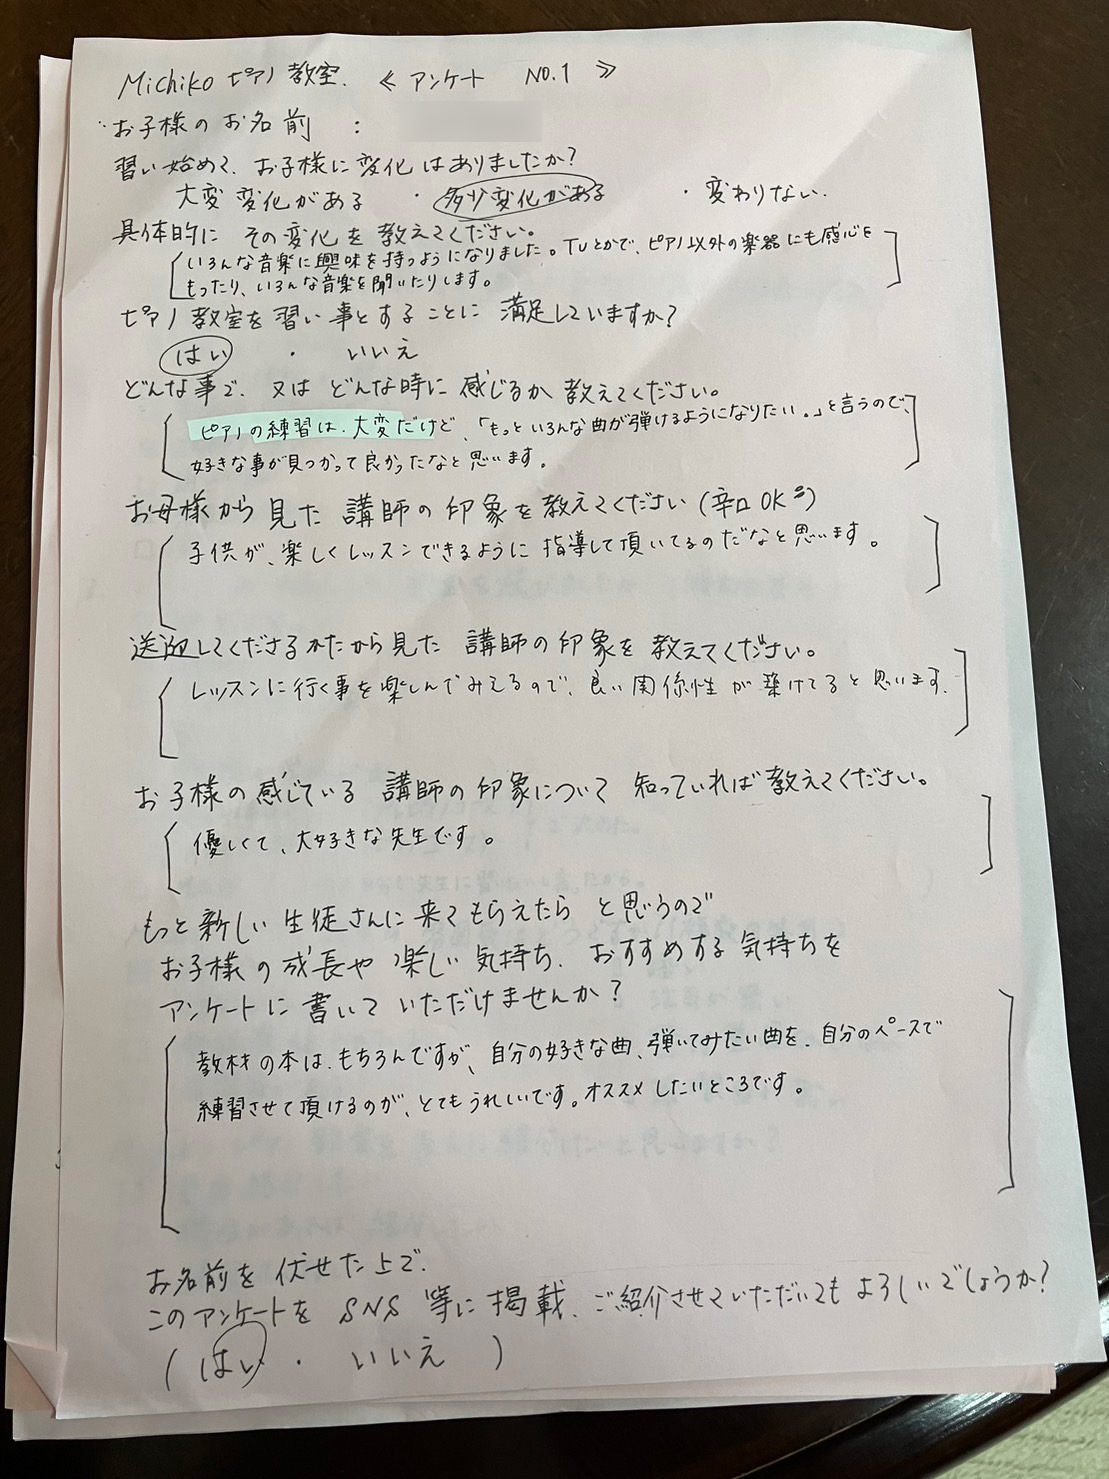 Michiko ピアノ教室. ≪ アンケート NO.1 ≫
お子様のお名前 :
習い始めて、お子様に変化はありましたか?
大変変化がある ・ 多少変化がある ・ 変わりない.
具体的に その変化を教えてください。
いろんな音楽に興味を持つようになりました。TVとかで、ピアノ以外の楽器にも感心を
もったり、いろんな音楽を聞いたりします。
ピアノ教室を習い事とすることに 満足していますか?
はい ・ いいえ
どんな事で、又は どんな時に感じるか教えてください。
ピアノの練習は、大変だけど、「もっといろんな曲が弾けるようになりたい。」と言うので、
好きな事が見つかって良かったなと思います。
お母様から見た講師の印象を教えてください(辛口OK)
子供が、楽しくレッスンできるように指導して頂いてるのだなと思います。
送迎してくださるかたから見た 講師の印象を教えてください。
レッスンに行く事を楽しんでみえるので、良い関係性が築けてると思います.
お子様の感じている 講師の印象について 知っていれば教えてください。
優しくて、大好きな先生です。
もっと新しい生徒さんに来てもらえたら と思うので
お子様の成長や楽しい気持ち、おすすめする気持ちを
アンケートに書いていただけませんか?
教材の本は、もちろんですが、自分の好きな曲、弾いてみたい曲を、自分のペースで
練習させて頂けるのが、とてもうれしいです。オススメしたいところです。
お名前を伏せた上で、
このアンケートをSNS等に掲載、ご紹介させていただいてもよろしいでしょうか?
( はい ・ いいえ )